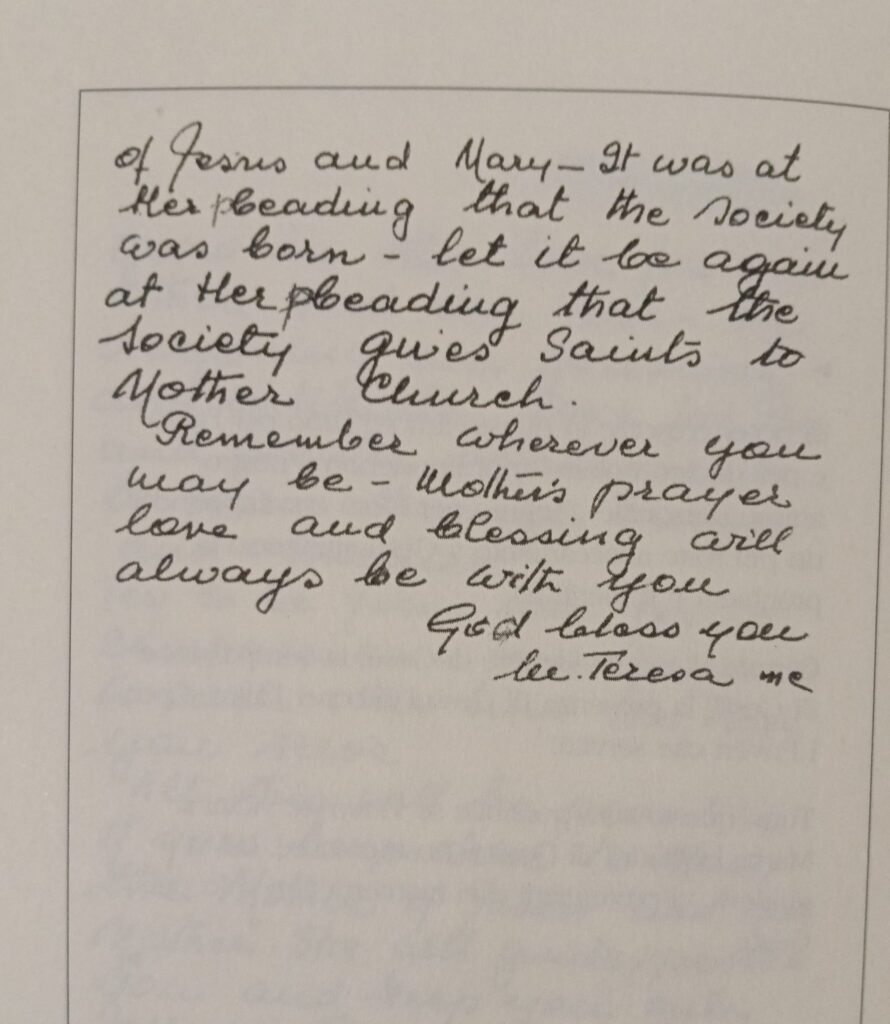 of Jesus and Mary – It was at
Her pleading that the Society
was born – let it be again
at Her pleading that the
Society gives Saints to
Mother Church.
Remember wherever you
may be – Mother's prayer
love and blessing will
always be with you
God bless you
M. Teresa mc